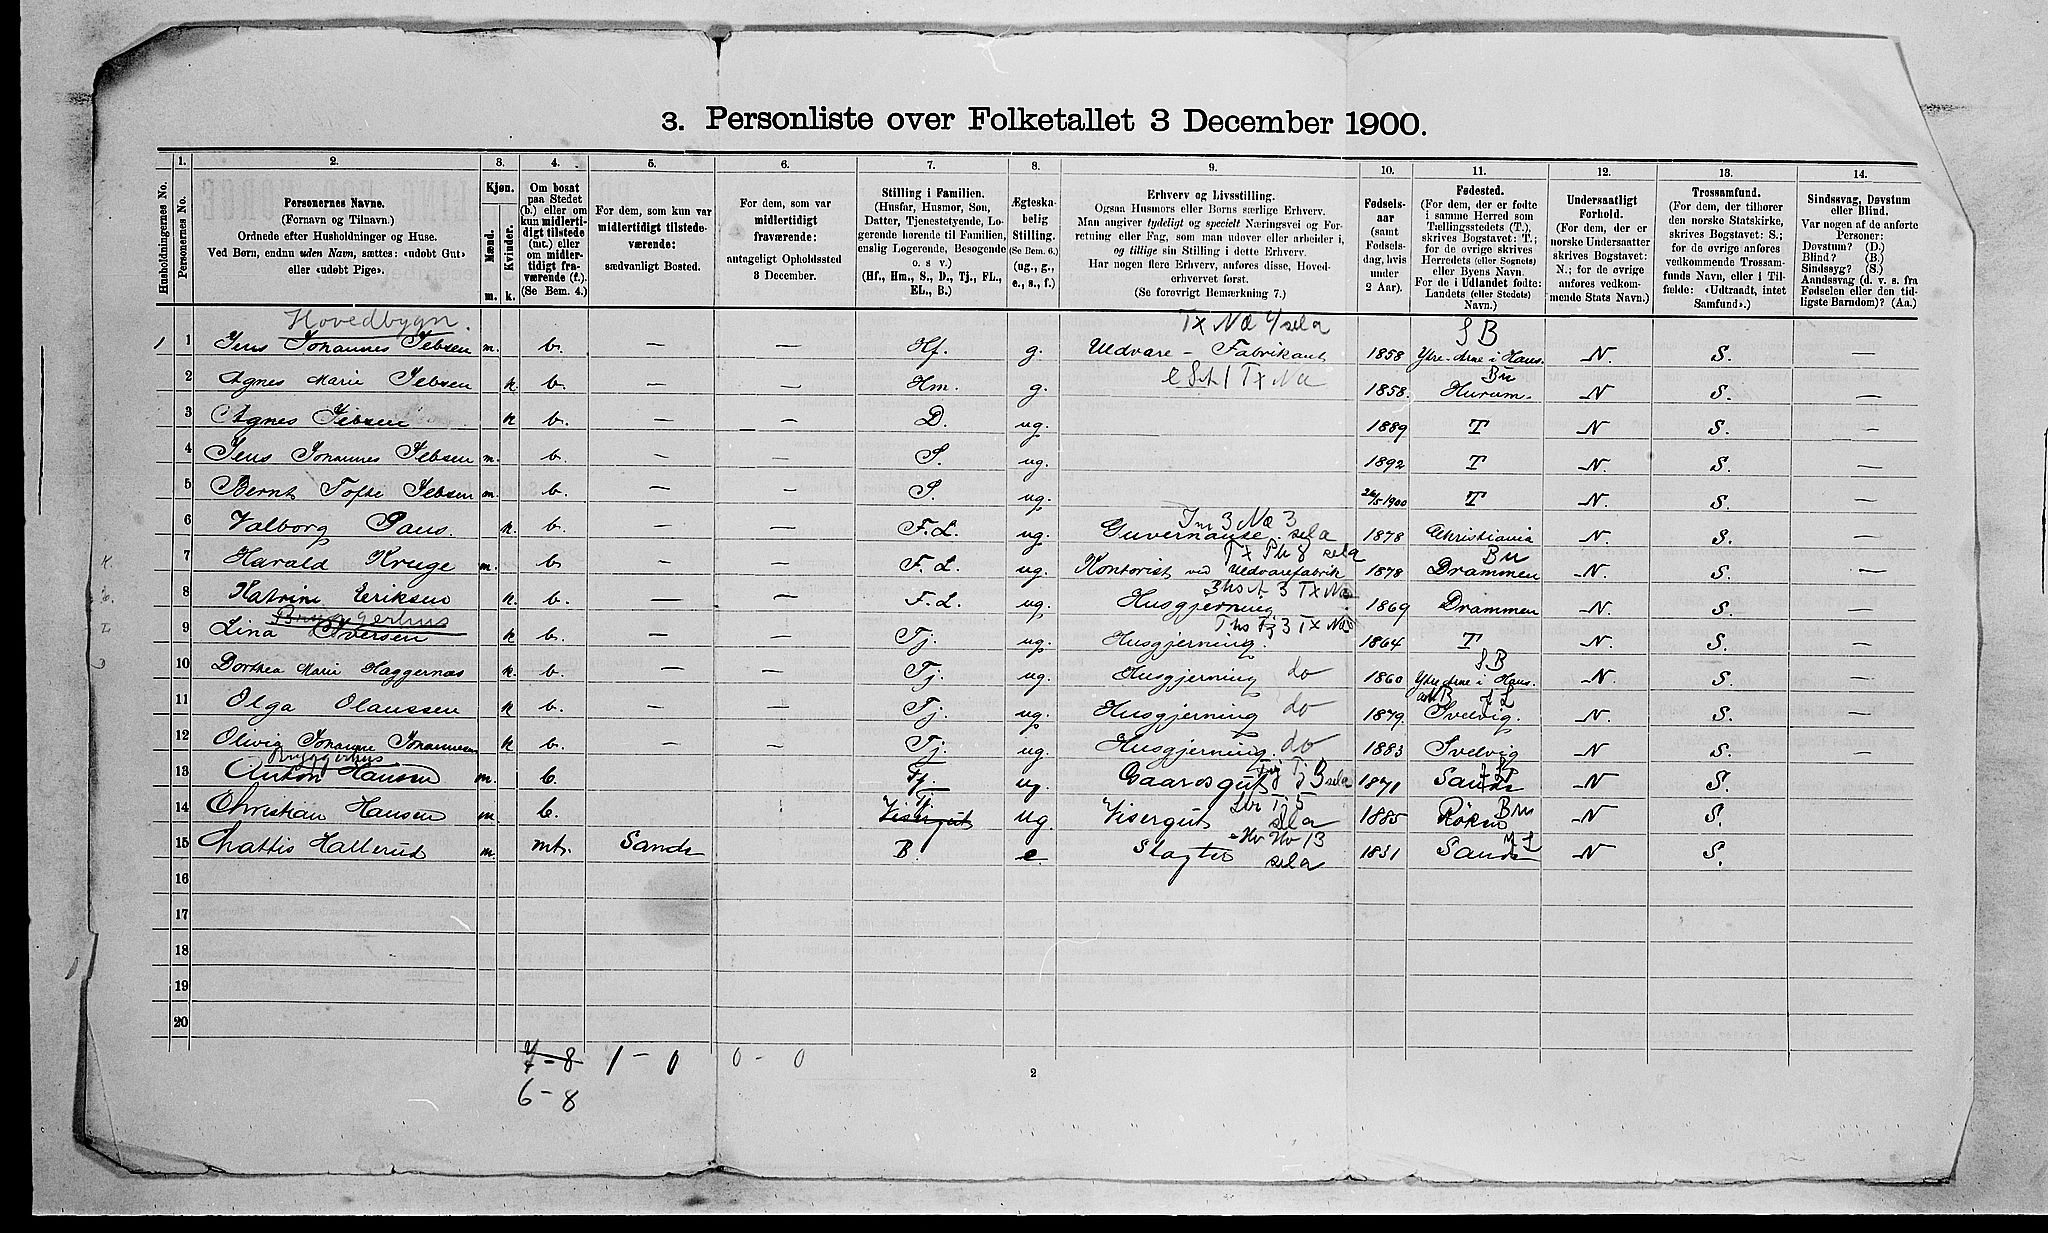 3. Personliste over Folketallet 3 December 1900.
Husholdningernes No.
1. Personernes No.
2. Personernes Navne. (Fornavn og Tilnavn.) Ordnede efter Husholdninger og Huse. Ved Børn, endnu uden Navn, sættes: «udøbt Gut» eller «udøbt Pige».
3. Kjøn. Mænd. m. Kvinder. k.
4. Om bosat paa Stedet (b.) eller om kun midlertidigt tilstede (mt.) eller om midlertidigt fraværende (f.). (Se Bem. 4.)
5. For dem, som kun var midlertidigt tilstedeværende: sædvanligt Bosted.
6. For dem, som var midlertidigt fraværende: antageligt Opholdssted 3 December.
7. Stilling i Familien. (Husfar, Husmor, Søn, Datter, Tjenestetyende, Logerende hørende til Familien, enslig Logerende, Besøgende o. s v.) (Hf., Hm., S., D., Tj., FL., EL., B.)
8. Ægteskabelig Stilling. (Se Bem. 6.) (ug., g., e., s., f.)
9. Erhverv og Livsstilling. Ogsaa Husmors eller Børns særlige Erhverv. Man angiver tydeligt og specielt Næringsvei og Forretning eller Fag, som man udøver eller arbeider i, og tillige sin Stilling i dette Erhverv. Har nogen flere Erhverv, anføres disse, Hovederhvervet først. (Se forøvrigt Bemærkning 7.)
10. Fødselsaar (samt Fødselsdag, hvis under 2 Aar).
11. Fødested. (For dem, der er fødte i samme Herred som Tællingsstedets (T.), skrives Bogstavet: T.; for de øvrige skrives Herredets (eller Sognets) eller Byens Navn. For de i Udlandet fødte: Landets (eller Stedets) Navn.)
12. Undersaatligt Forhold. (For dem, der er norske Undersaatter skrives Bogstavet: N.; for de øvrige anføres vedkommende Stats Navn.)
13. Trossamfund. (For dem, der tilhører den norske Statskirke, skrives Bogstavet: S.; for de øvrige anføres vedkommende Trossamfunds Navn, eller i Tilfælde: «Udtraadt, intet Samfund».)
14. Sindssvag, Døvstum eller Blind. Var nogen af de anførte Personer: Døvstum? (D.) Blind? (B.) Sindssyg? (S.) Aandssvag (d. v. s. fra Fødselen eller den tidligste Barndom)? (Aa.)
Hovedbygn. Tx Næ 4 sela S B
1 1 Jens Johannes Jebsen m. b. — — Hf. g. Uldvare-Fabrikant 1858 Ytre-Arne i Haus. N. S. —
Bu
2 Agnes Marie Jebsen k b. — — Hm. g. 1858. Hurum. N S. —
3 Agnes Jebsen k b. — — D. ug. 1889 T N S. —
4 Jens Johannes Jebsen m. b. — — S. ug. 1892 T N S. —
5 Bernt Tofte Jebsen m. b. — — S. ug. 26/5 1900 T N. S. —
6 Valborg Paus. k. b. — — F.L. ug. Guvernante. sela 1878 Christiania N. S. —
Tx Ph 8 sela Bu
7 Harald Kruge m. b. — — F.L. ug. Kontorist ved Uldvarefabrik 1878 Drammen N. S. —
8 Katrine Eriksen k. b. — — F.L. ug. Husgjerning 1869 Drammen N. S. —
Bryggerhus
9 Lina Iversen k b. — — Tj. ug. Husgjerning. 1864 T N. S. —
S B
10 Dorthea Marie Haggernæs k. b. — — Tj. ug. Husgjerning do 1860 Ytre Arne i Haus. N. S. —
11 Olga Olaussen k b. — — Tj. ug. Husgjerning do 1879. Svelvig. N. S. —
12 Olivia Johanne Johannesen k b. — — Tj. ug. Husgjerning. do 1883 Svelvig N S. —
Bryggerhus
13 Anton Hansen m. b. Tj. ug. Gaardsgut Tj 3 sela 1871 Sande N S. —
Tj Bu
14 Christian Hansen m. b. Visergut ug. Visergut sela 1885 Røken N S. —
15 Mattis Hallerud m. mt. Sande B. e Slagter sela 1851 Sande N S. —
16
17
18
19
20
7-8 1-0 0-0
6-8
2